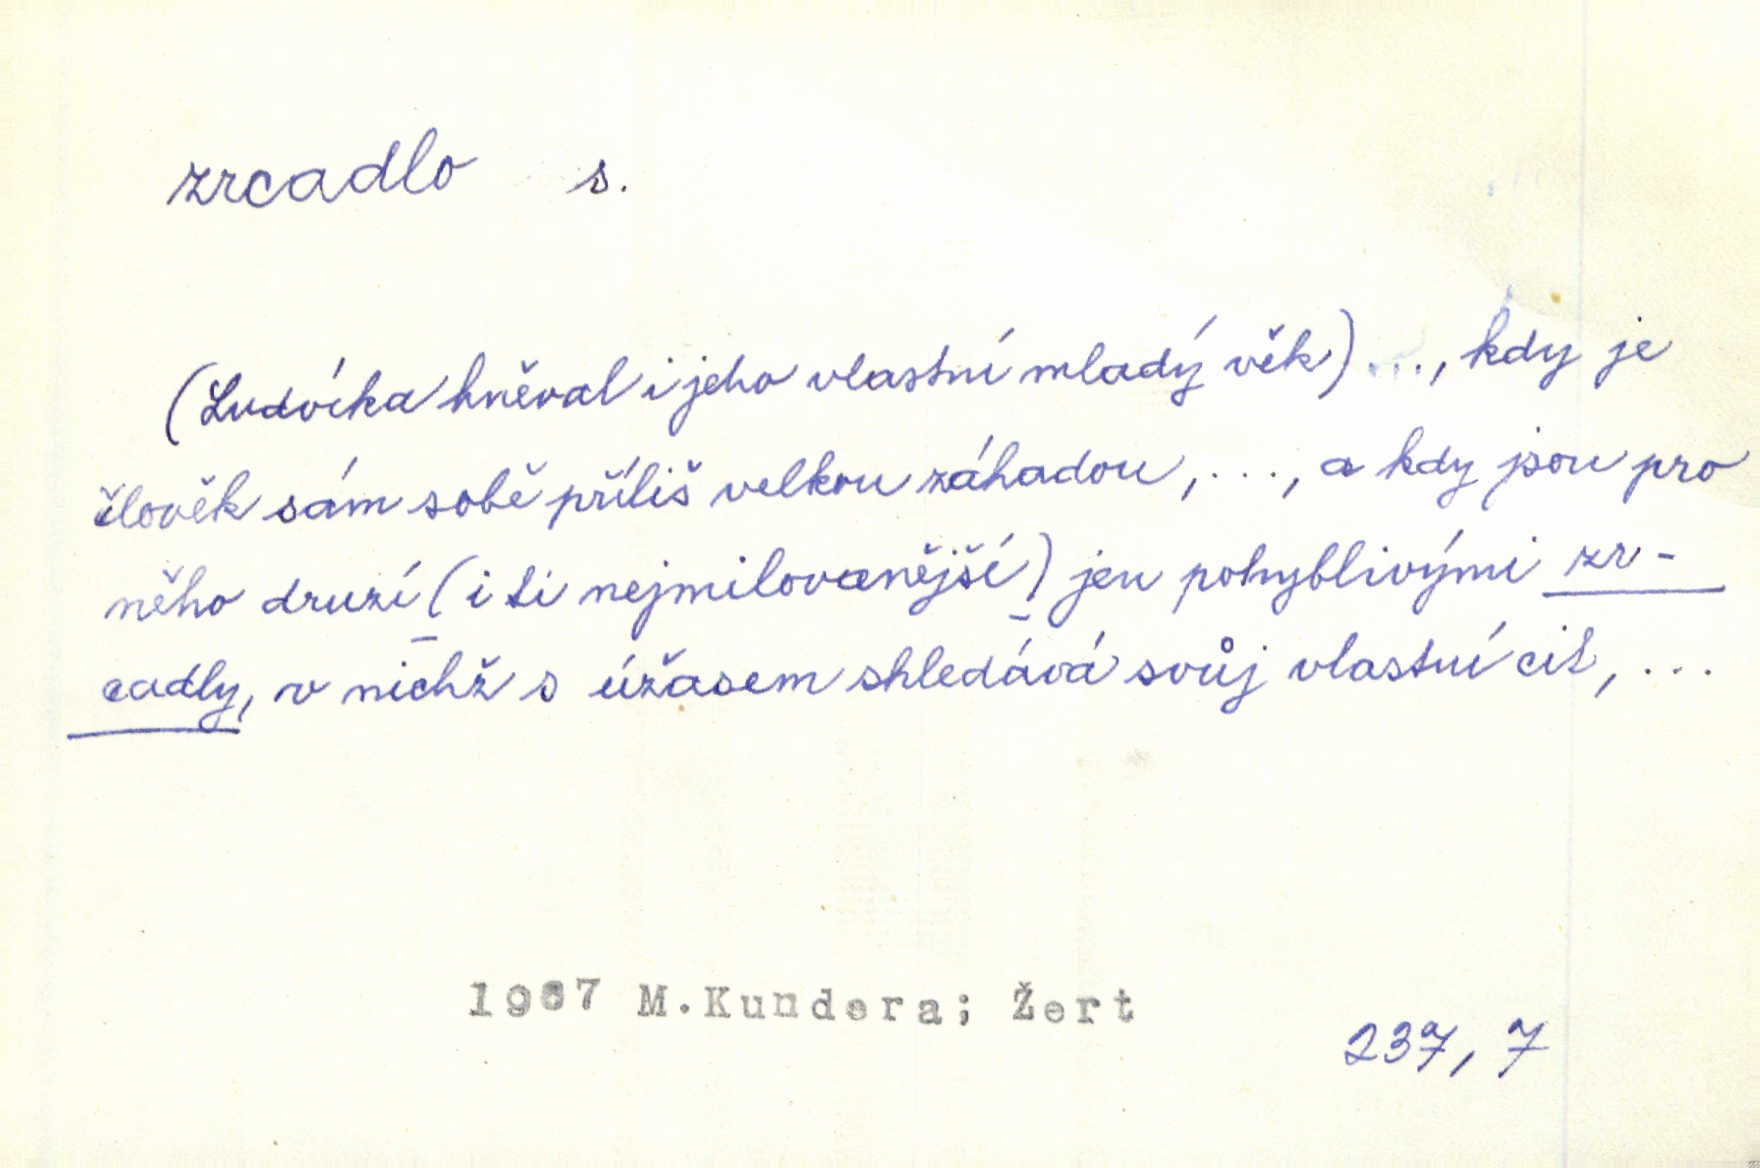 zrcadlo s.
(Ludvíka hněval i jeho vlastní mladý věk) ..., kdy je
člověk sám sobě příliš velkou záhadou, ..., a kdy jsou pro
něho druzí (i ti nejmilovanější) jen pohyblivými zr-
cadly, v nichž s úžasem shledává svůj vlastní cit, ...
1967 M.Kundera; Žert
237, 7